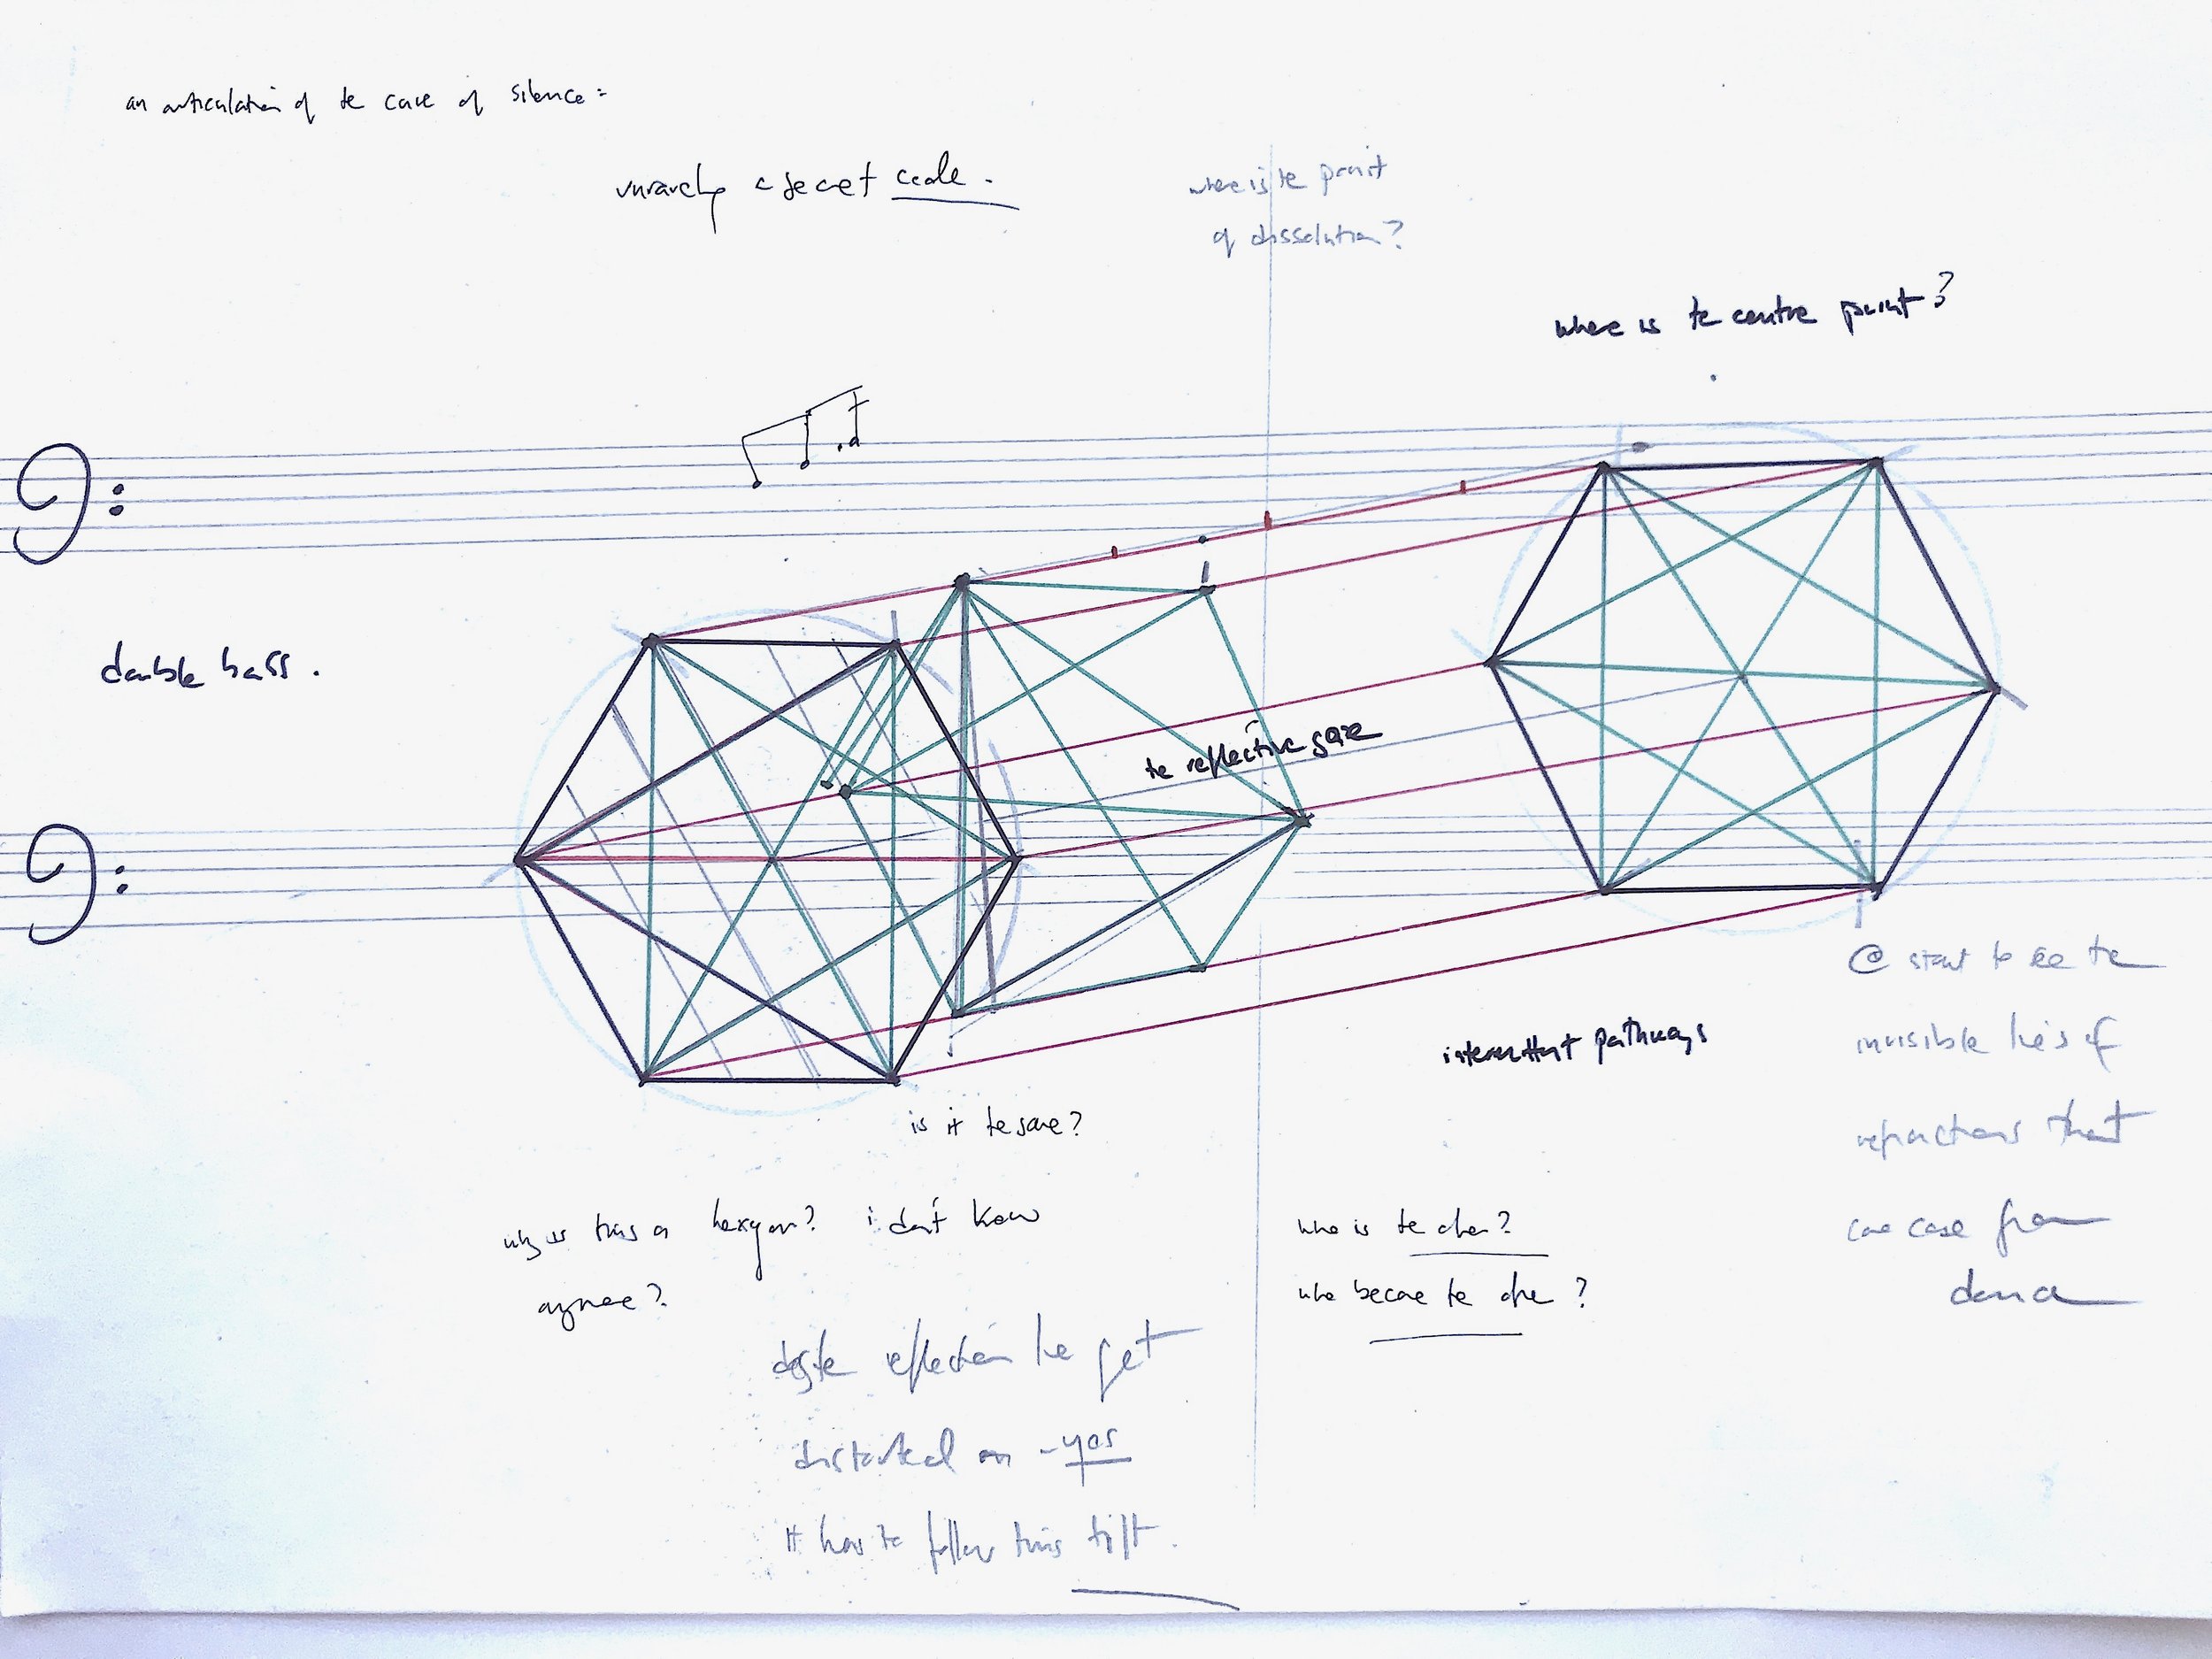 an articulation of te cave of silence =
unravelling a secret code.
where is te point
of dissolution?
where is te centre point?
double bass.
te reflective gaze
intermittent pathways
is it te same?
start to see te
invisible lines of
refractions that
can come from
why is this a hexagon? i don't know
anymore?
who is te other?
who became te other?
reflection he get
distorted on - yes
it has to follow this tilt.